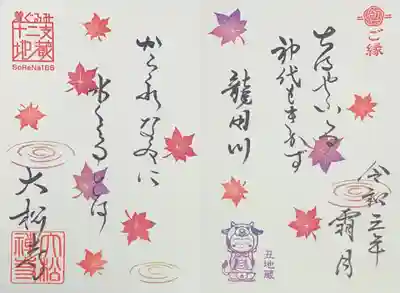 ご縁
ちはやふる
神代もきかず
龍田川
からくれなゐに
水くくるとは
令和三年
霜月
丑地蔵
大松寺
十二支
地蔵